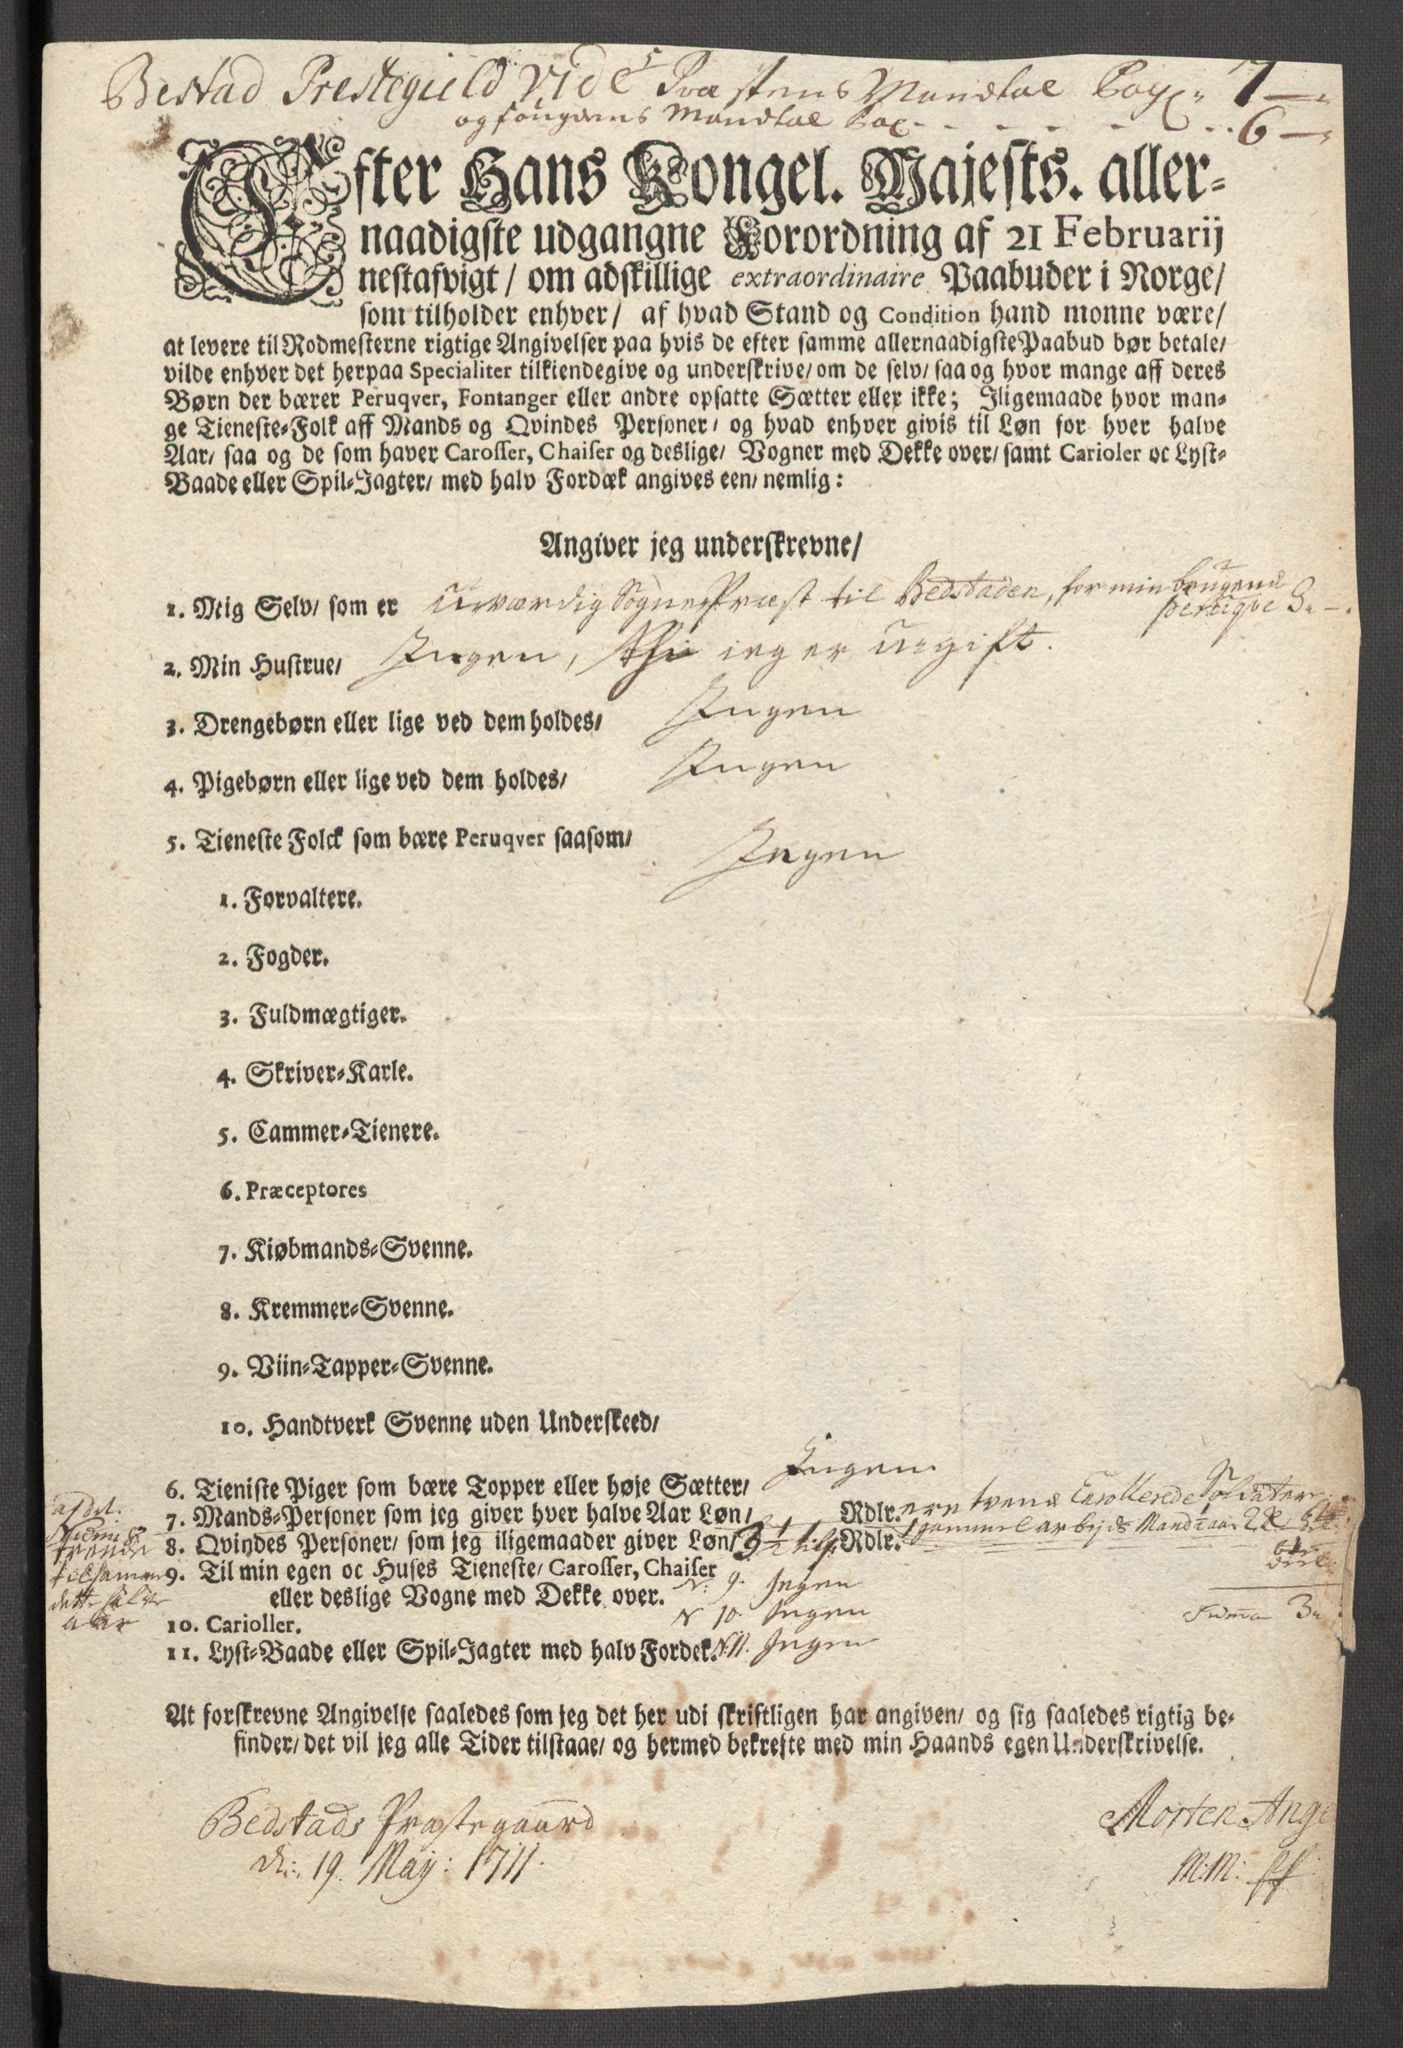 Bestad Prestegield Vide Præstens Mandtal Pag: 7 —
og fougdens Mandtal Pag. - - - - - 6 —
Efter Hans Kongel. Majests. aller-
naadigste udgangne Forordning af 21 Februarij
nestafvigt/ om adskillige extraordinaire Paabuder i Norge/
som tilholder enhver/ af hvad Stand og Condition hand monne være/
at levere til Rodmesterne rigtige Angivelser paa hvis de efter samme allernaadigste Paabud bør betale/
vilde enhver det herpaa Specialiter tilkiendegive og underskrive/ om de selv/ saa og hvor mange aff deres
Børn der bærer Peruqver, Fontanger eller andre opsatte Sætter eller ikke; Jligemaade hvor man-
ge Tieneste-Folk aff Mands og Qvindes Personer/ og hvad enhver givis til Løn for hver halve
Aar/ saa og de som haver Carosser, Chaiser og deslige/ Vogner med Dekke over/ samt Carioler oc Lyst-
Baade eller Spil-Jagter/ med halv Fordæk angives een/ nemlig:
Angiver jeg underskrevne/
1. Mig Selv/ som er uværdig Sogne Præst til Bedstaden, for min brugende
perruqve 3 - -
2. Min Hustrue/ Ingen, thi ieg er ugift.
3. Drengebørn eller lige ved dem holdes/ Ingen
4. Pigebørn eller lige ved dem holdes/ Ingen
5. Tieneste Folck som bære Peruqver saasom/ Ingen
1. Forvaltere.
2. Fogder.
3. Fuldmægtiger.
4. Skriver-Karle.
5. Cammer-Tienere.
6. Præceptores
7. Kiøbmands-Svenne.
8. Kremmer-Svenne.
9. Viin-Tapper-Svenne.
10. Handtverk Svenne uden Underskeed/
6. Tieniste Piger som bære Topper eller høje Sætter/ Ingen
7. Mands-Personer som jeg giver hver halve Aar Løn/ Rdlr. ere tvende Enrollerede Soldater
8. Qvindes Personer/ som jeg iligemaader giver Løn/ Rdlr. gammel arbejds Mand
9. Til min egen oc Huses Tieneste/ Carosser, Chaiser
eller deslige Vogne med Dekke over. N: 9. Ingen
10. Carioller. N 10. Ingen Summa 3
11. Lyst-Baade eller Spil-Jagter med halv Fordek. N. 11. Ingen
At forskrevne Angivelse saaledes som jeg det her udi skriftligen har angiven/ og sig saaledes rigtig be-
finder/ det vil jeg alle Tider tilstaae/ og hermed bekrefte med min Haands egen Underskrivelse.
Bedstads Præstegaard
d: 19. May: 1711.
Morten Ange
M:M: